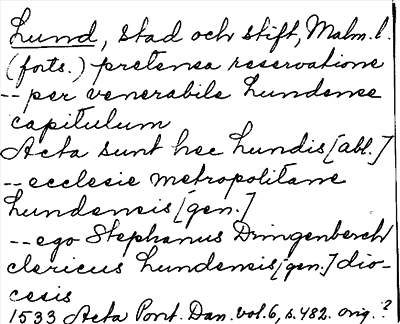 Lund, stad och stift, Malm. l.
(forts.) pretensa reservatione
-- per venerabile Lundense
capitulum
Acta sunt hec Lundis [abl.]
-- ecclesie metropolitane
Lundensis [gen.]
-- ego Stephanus Dringenberch
clericus Lundensis [gen.] dio-
cesis
1533 Acta Pont. Dan. vol. 6, s. 482. orig.?